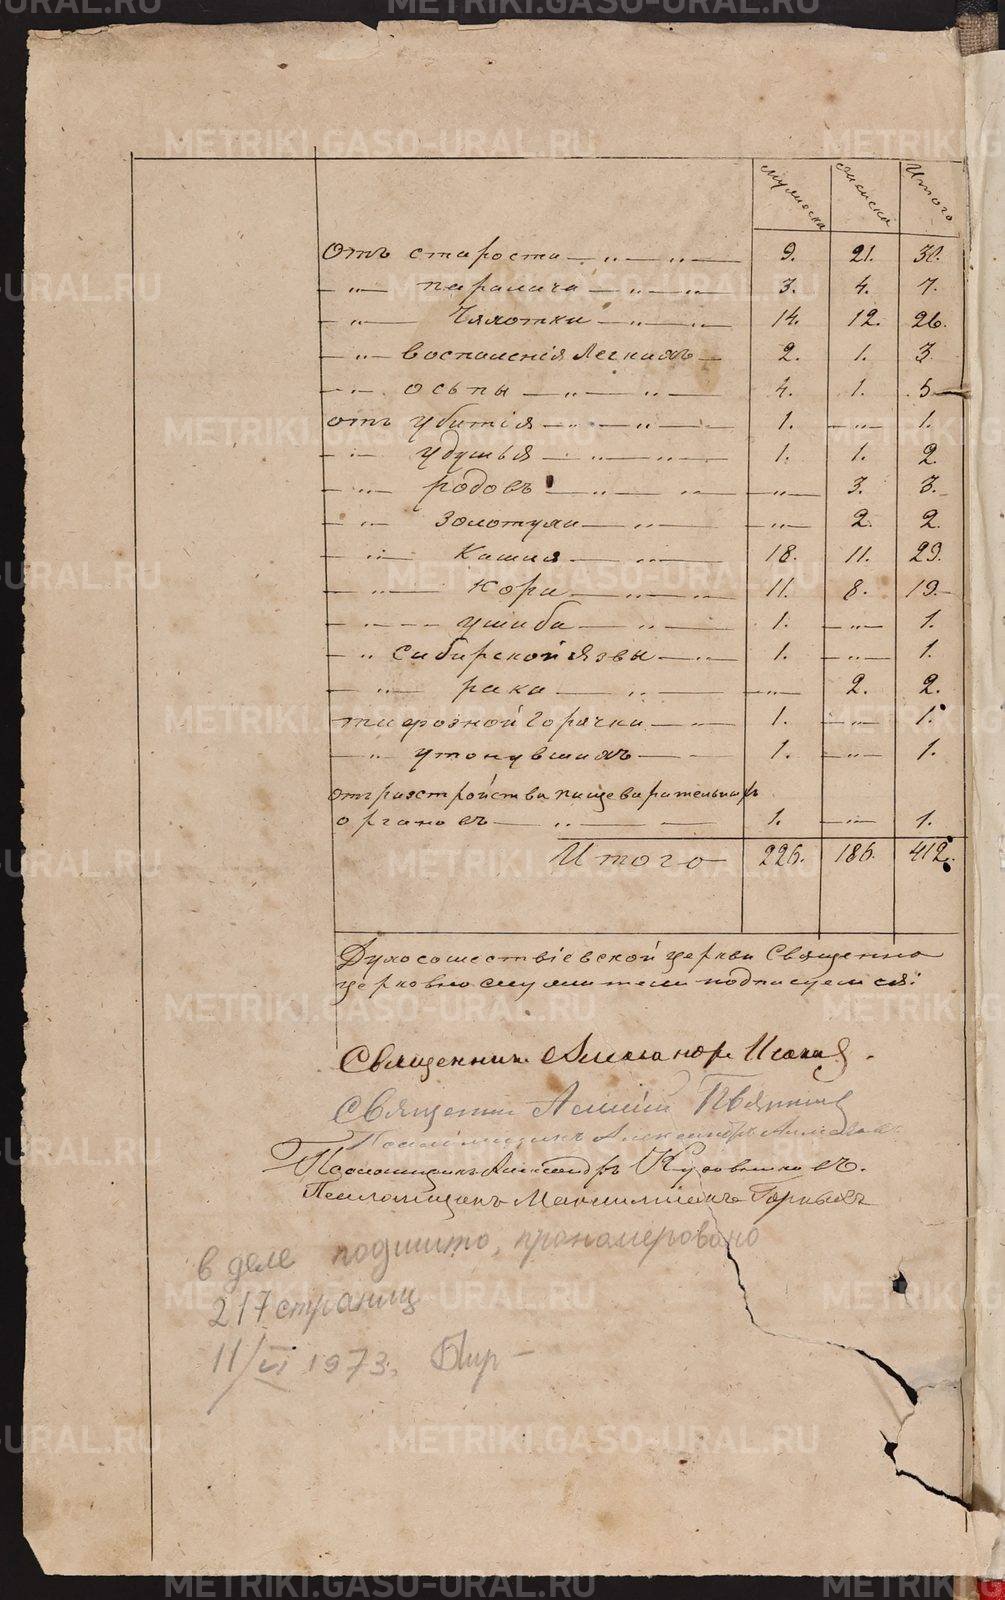 Мужеска Женска Итого
Отъ старости — „ — „ — 9. 21. 30.
— „ — паралича — „ — „ 3. 4. 7.
— „ — Чахотки — „ — 14. 12. 26.
— „ — воспаленія легкихъ — 2. 1. 3.
— „ — оспы — „ — „ — 4. 1. 5
отъ убитія — „ — „ — 1. — „ — 1.
— „ — удушья — „ — „ — 1. 1. 2.
— „ — родовъ — „ — „ — „ — 3. 3.
— „ — золотухи — „ — — „ — 2. 2.
— „ — Кашля — „ — 18. 11. 29.
— „ — Кори — „ — „ 11. 8. 19.
— „ — ушиба — „ — 1. — „ — 1.
— „ Сибирской язвы — „ — 1. — „ — 1.
— „ — рака — „ — — „ — 2. 2.
тифозной горячки — „ — 1. — „ — 1.
— „ — утонувшихъ — 1. — „ — 1.
отъ разстройства пищеварительныхъ
органовъ — „ — 1. — „ — 1.
Итого 226. 186. 412.
Духосошествіевской церкви Священно
церковно служители подписуемся:
Священникъ Александръ
Священникъ
Псаломщикъ Александръ
Псаломщикъ Александръ Кузовниковъ.
Псаломщикъ Максимиліанъ Горныхъ
в деле подшито, пронумеровано
217 страниц
11/VI 1973.
METRIKI.GASO-URAL.RU